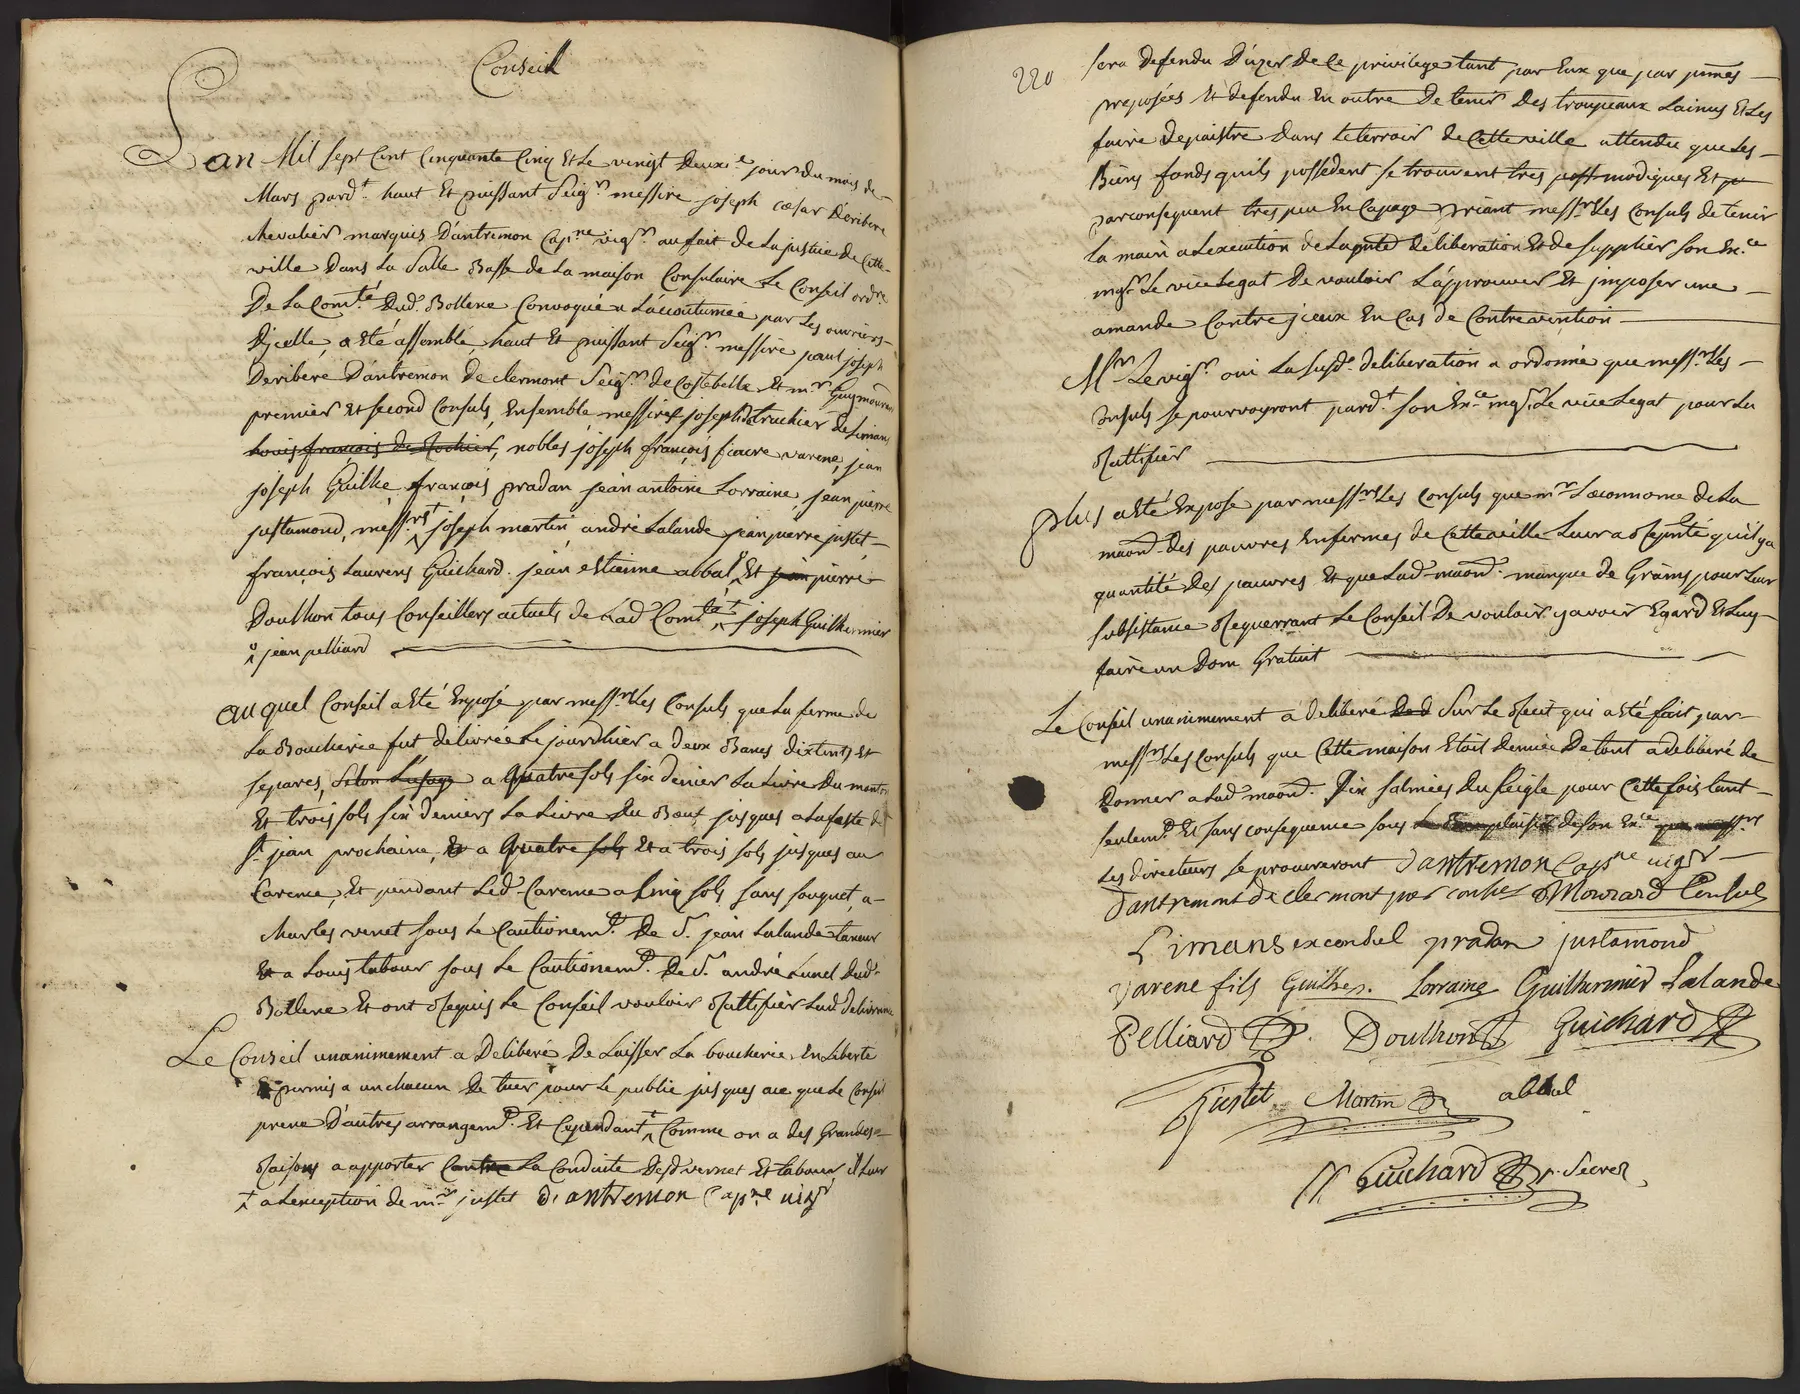 Conseil
L'an Mil sept Cent Cinquante Cinq Et Le vingt deuxe. jour du mois de
Mars pardt. haut Et puissant Seigr. messire joseph cæsar Deribere
chevalier marquis D'antremon Capne. vigr. au fait de La justice de Cette
ville Dans La Salle Basse de La maison Consulaire Le Conseil ordre.
De La Comté. Dud. Bollene Convoqué a L'acoutumée par Les ouvriers
Djcelle, a Eté assemblé, haut Et puissant Seigr. messire paul joseph
Deribere D'antremon de clermont Seigr. de Costebelle Et mr. Guy mourard
premier Et second Consuls, Ensemble, messires joseph de truchier de Limans
Louis françois de Rochier, nobles joseph françois fiacre varene, jean
joseph Guilhe, françois pradan jean antoine Lorraine, jean pierre
justamond, messrs. † joseph martin, andré Lalande jean pierre justet
françois Laurens Guichard. jean estienne abbal, Et jean pierre
Doulhon tous Conseillers actuels de Lad Comté, † joseph Guilhermier
jean pelliard
auquel Conseil a Eté Exposé par messrs. Les Consuls que La ferme de
La Boucherie fut delivrée Le jourdhier a deux Bancs distints Et
separes, Selon L'usage a Quatre sols six denier La Livre Du mouton
Et trois sols six deniers La Livre Du Bœuf jusques a La feste de
St. jean prochaine, Et a Quatre sols Et a trois sols jusques au
Careme, Et pendant Led. Careme a Cinq sols sans souquet, a
Charles vernet sous Le Cautionemt. De Sr. jean Lalande taneur
Et a Louis Labour sous Le Cautionemt. De Sr. andré Lunel Dud.
Bollene Et ont Requis Le Conseil vouloir Rattifier Lad. delivrance
Le Conseil unanimement a Deliberé De Laisser La boucherie En Liberté
Et permis a un chacun De tuer pour Le public jusques ace que Le Conseil
prene D'autres arrangemt. Et Cependant † Comme on a des Grandes
Raisons a apporter Contre La Conduite Desd. vernet Et Labour il Leur
† a L'exception de mr. justet D'antremon Capne vigr
220
sera defendu D'uzer De Ce privilege tant par Eux que par personnes
preposées Et defendu En outre De tenir Des troupeaux Lainus Et Les
faire Depaistre Dans Le terroir de Cette ville attendu que Les
Biens fonds quils possedent se trouvent tres poss modiques Et p
par consequent tres peu En Capage priant messrs. Les Consuls de tenir
La main a L'execution de La pnte Deliberation Et de supplier Son Exce
mgr. Le vice Legat De vouloir L'approuver Et jmposer une
amande Contre jceux En Cas de Contrevention
Mr. Le vigr. oui La susd. deliberation a ordonné que messrs. Les
Consuls se pourvoyront pardt. Son Exce mgr. Le vice Legat pour La
Rattifier
plus a Eté Exposé par messrs. Les Consuls que mr. L'œconnome de La
maond. Des pauvres Enfermes de Cette ville Leur a Represté quil y a
quantité Des pauvres Et que Lad. maond. manque de Grains pour Leur
subsistance Requerrant Le Conseil De vouloir y avoir Egard Et Luy
faire un Don Gratuit
Le Conseil unanimement a deliberé Ded Sur Le Recit qui a Eté fait par
messrs. Les Consuls que Cette maison Etoit Denuée De tout a deliberé de
Donner a Lad. maond. Dix salmées Du seigle pour Cette fois tant
seulemt. Et sans consequence sous Le bon plaisir de son Exce que messrs
Les directeurs se procureront D'antremon Capne vigr
D'antremont de clermont per consul Mourard Consul
Limans exconsul pradan justamond
Varene fils Guilhe. Lorraine Guilhermier Lalande
Pelliard Doulhon Guichard
Justet Martin abbal
Guichard Secre.